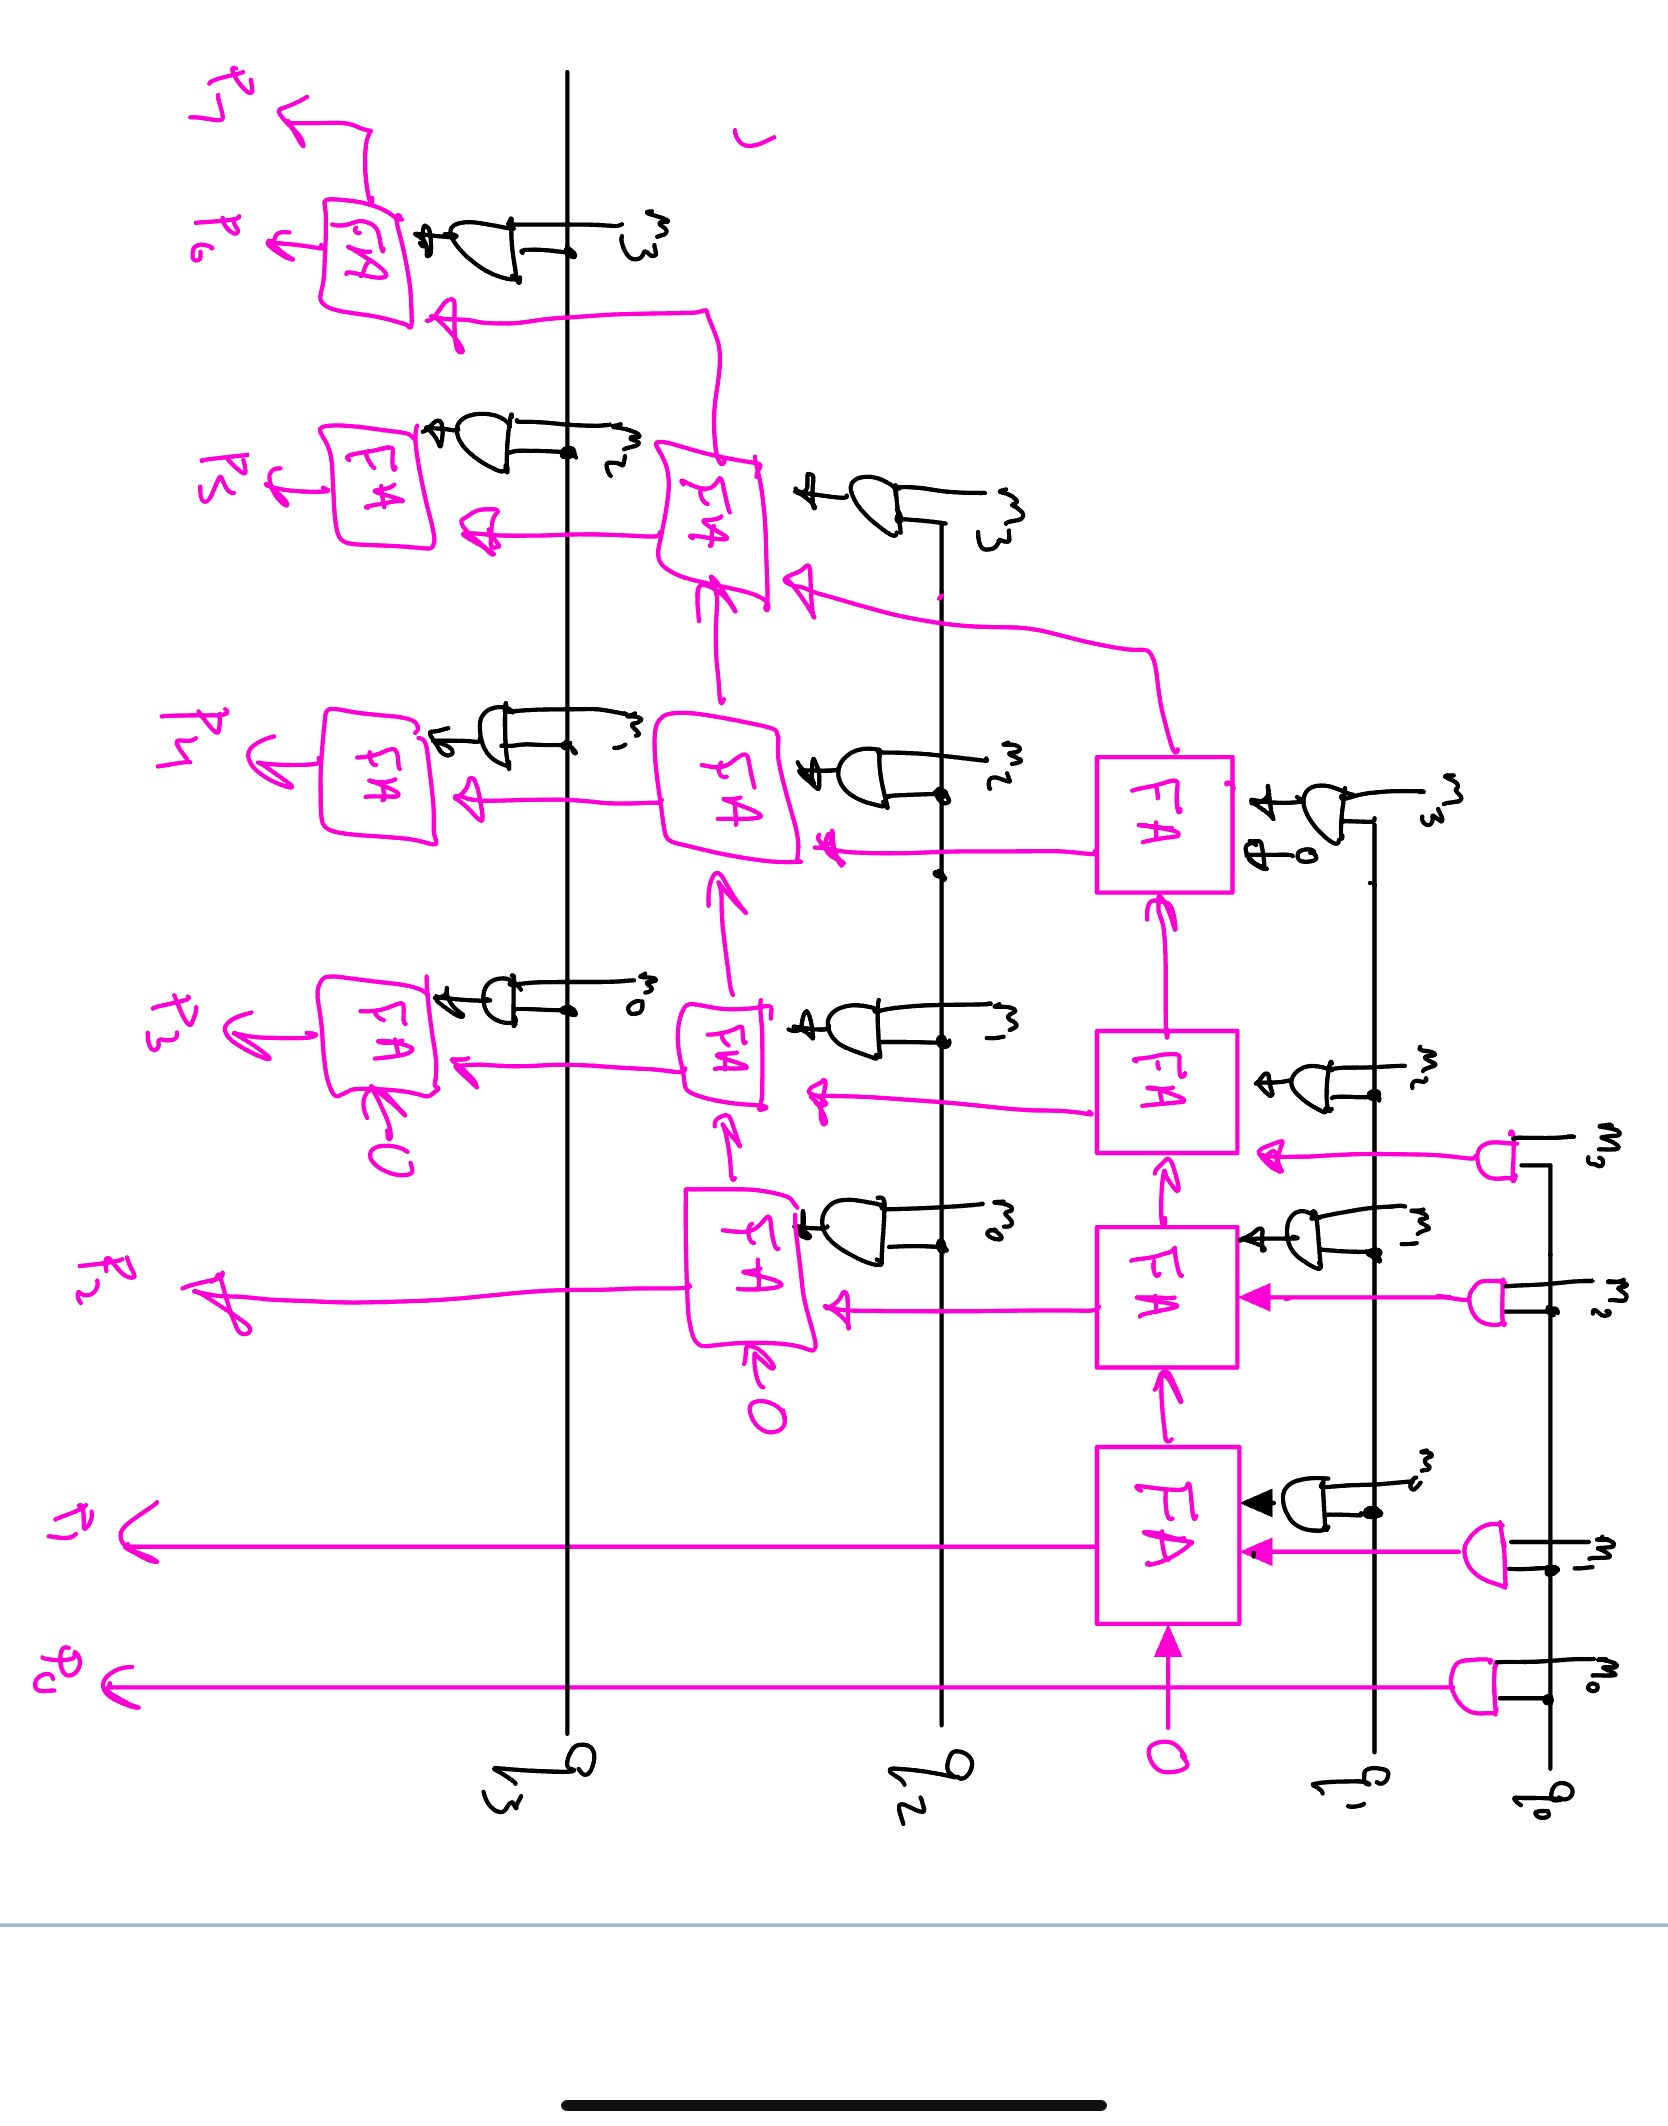 m3 m2 m1 m0 q0
m3 m2 m1 m0 q1
0
FA FA FA FA 0
m3 m2 m1 m0 q2
FA FA FA FA 0
m3 m2 m1 m0 q3
FA FA FA FA 0
P7 P6 P5 P4 P3 P2 P1 P0